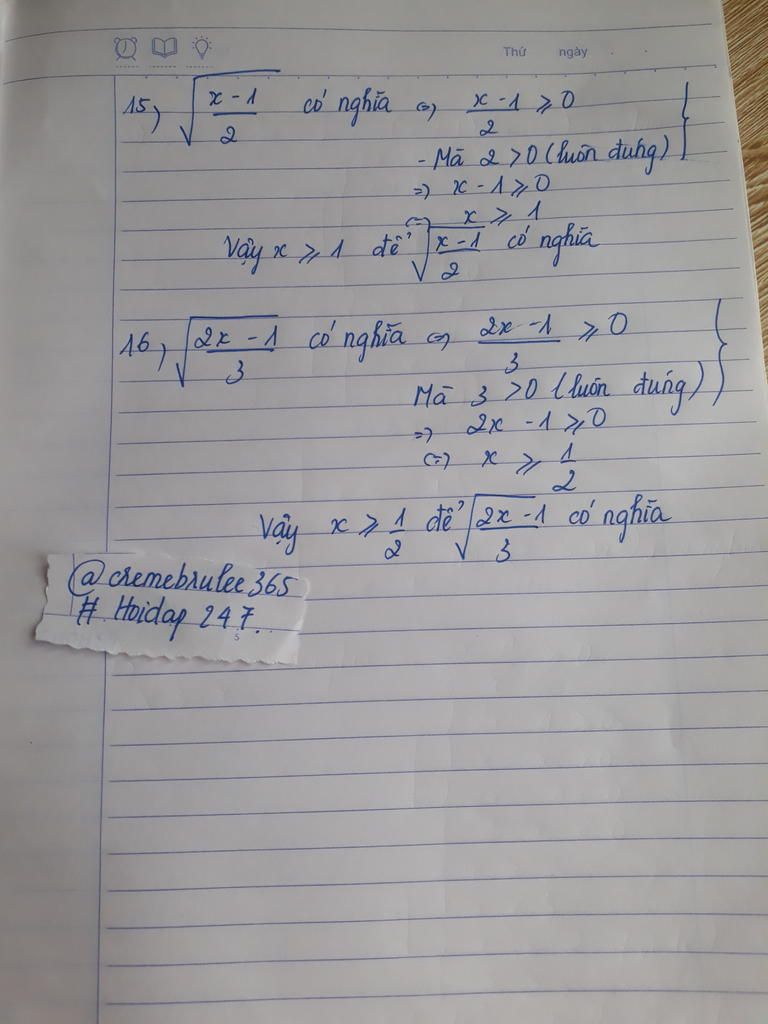 Thứ ngày
15) √((x - 1)/2) có nghĩa <=> (x - 1)/2 ⩾ 0
- Mà 2 > 0 (luôn đúng)
=> x - 1 ⩾ 0
<=> x ⩾ 1
Vậy x ⩾ 1 để √((x - 1)/2) có nghĩa
16) √((2x - 1)/3) có nghĩa <=> (2x - 1)/3 ⩾ 0
Mà 3 > 0 (luôn đúng)
=> 2x - 1 ⩾ 0
<=> x ⩾ 1/2
Vậy x ⩾ 1/2 để √((2x - 1)/3) có nghĩa
@cremebrulee365
# Hoidap 247..
5